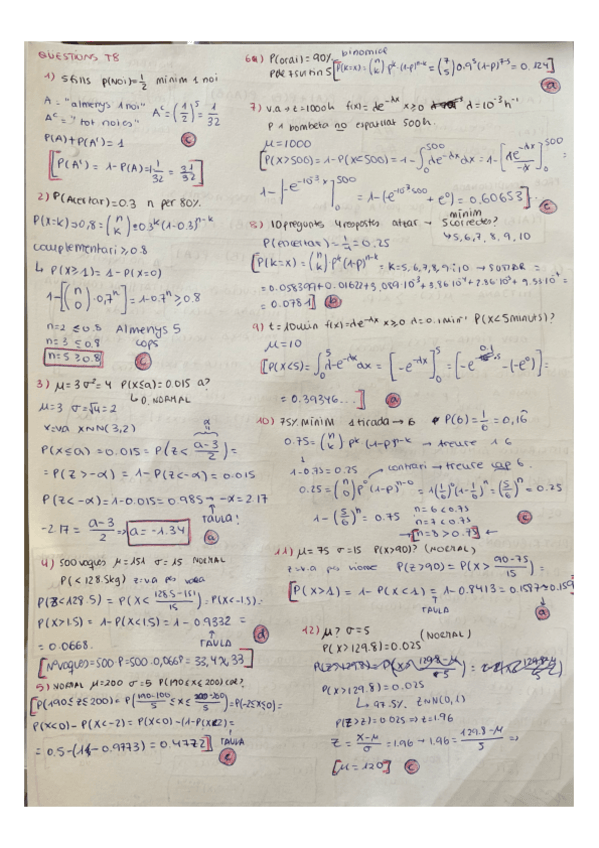 QÜESTIONS T8
1) 5 fills p(noi)=1/2 mínim 1 noi
A = "almenys 1 noi" A^c = (1/2)^5 = 1/32
A^c = "tot noies"
P(A)+P(A^c) = 1 (c)
[P(A^c) = 1-P(A)=1-1/32 = 31/32]
2) P(Acertar)=0.3 n per 80%
P(X=k)=0,8=(n k)0.3^k(1-0.3)^n-k
complementari ≥ 0.8
↳ P(X≥1) = 1-P(X=0)
1-[(n 0)·0,7^n]=1-0.7^n ≥ 0.8
n=2 ≤ 0.8 Almenys 5
n=3 ≤ 0.8 cops
n=5 ≥ 0.8 (c)
3) μ=3 σ²=4 P(X≤a)=0.015 a?
↳ D. NORMAL
μ=3 σ=√4=2
X=va X~N(3,2) α
P(X≤a) = 0.015 = P(Z< a-3/2)=
= P(Z>-α) = 1-P(Z<-α) = 0.015
P(Z<-α)=1-0.015=0.985 → -α=2.17
TAULA!
-2.17 = a-3/2 => a = -1.34 (a)
4) 500 vaques μ=151 σ=15 NORMAL
P(<128.5kg) z:va pes vaca
P(Z<128.5) = P(X< 128.5-151/15)=P(X<-1.5)=
P(X>1.5) = 1-P(X<1.5) = 1-0.9332 =
= 0.0668. TAULA (d)
[Nºvaques=500·P=500·0,066P=33,4≈33]
5) NORMAL μ=200 σ=5 P(190≤x≤200)cal?
[P(190≤Z≤200)=P(190-200/5 ≤X≤ 200-200/5)=P(-2≤X≤0)=
P(X<0)-P(X<-2)=P(X<0)-(1-P(X≤2)=
= 0.5-(1-0.9773)=0.4772] TAULA
(e)
6a) P(orai)=90% binomial
P de 7 surtin 5 [P(X=k)=(n k) p^k·(1-p)^n-k=(7 5)0.9^5(1-p)^7-5=0.124]
(a)
7) v.a → t=1000h f(x)=λe^-λx x≥0 λ=10^-3 h^-1
P 1 bombeta no espatllat 500h.
μ=1000
[P(X>500)=1-P(X<500)=1-∫0 500 λe^-λx dx=1-[λe^-λx/-λ]0 500 =
1-[-e^-10^-3 x]0 500 = 1-(-e^-10^-3 500 + e^0)=0.60653] (e)
8) 10 preguntes 4 respostes atzar → mínim 5 correctes?
↳5,6,7,8,9,10
P(encertar)=1/4=0.25
[P(k=x)=(n k)p^k(1-p)^n-k = k=5,6,7,8,9 i 10 → SUMAR =
= 0.0781] (b)
9) t=10min f(x)=λe^-λx x≥0 λ=0.1min^-1 P(X<5minuts)?
μ=10
[P(X<5)=∫0 5 λ-e^-λx dx = [-e^-λx]0 5=[-e -(-e^0)]=
= 0.39346...] (a)
10) 75% mínim 1 tirada → 6 P(6)=1/6=0,16
0.75=(n k) p^k (1-p)^n-k → treure 1 6
1-0.75=0.25 contrari → treure cap 6.
0.25=(n 0)p^0(1-p)^n-0=1(1/6)^0(1-1/6)^n=(5/6)^n=0.25
1-(5/6)^n = 0.75 n=6<0.75
n=7<0.75
n=8>0.75 (e)
11) μ=75 σ=15 P(X>90)? (NORMAL)
z=v.a pes home P(Z>90)=P(X> 90-75/15)=
[P(X>1)=1-P(X<1)=1-0.8413=0.1587≈0.159
TAULA (a)
12) μ? σ=5 (NORMAL)
P(X>129.8)=0.025
P(X>129.8)=0.025
↳ 97.5%. Z~N(0,1)
P(Z>z)=0.025 → z=1.96
Z = X-μ/σ =1.96 → 1.96= 129.8-μ/5 =>
[μ=120] (c)